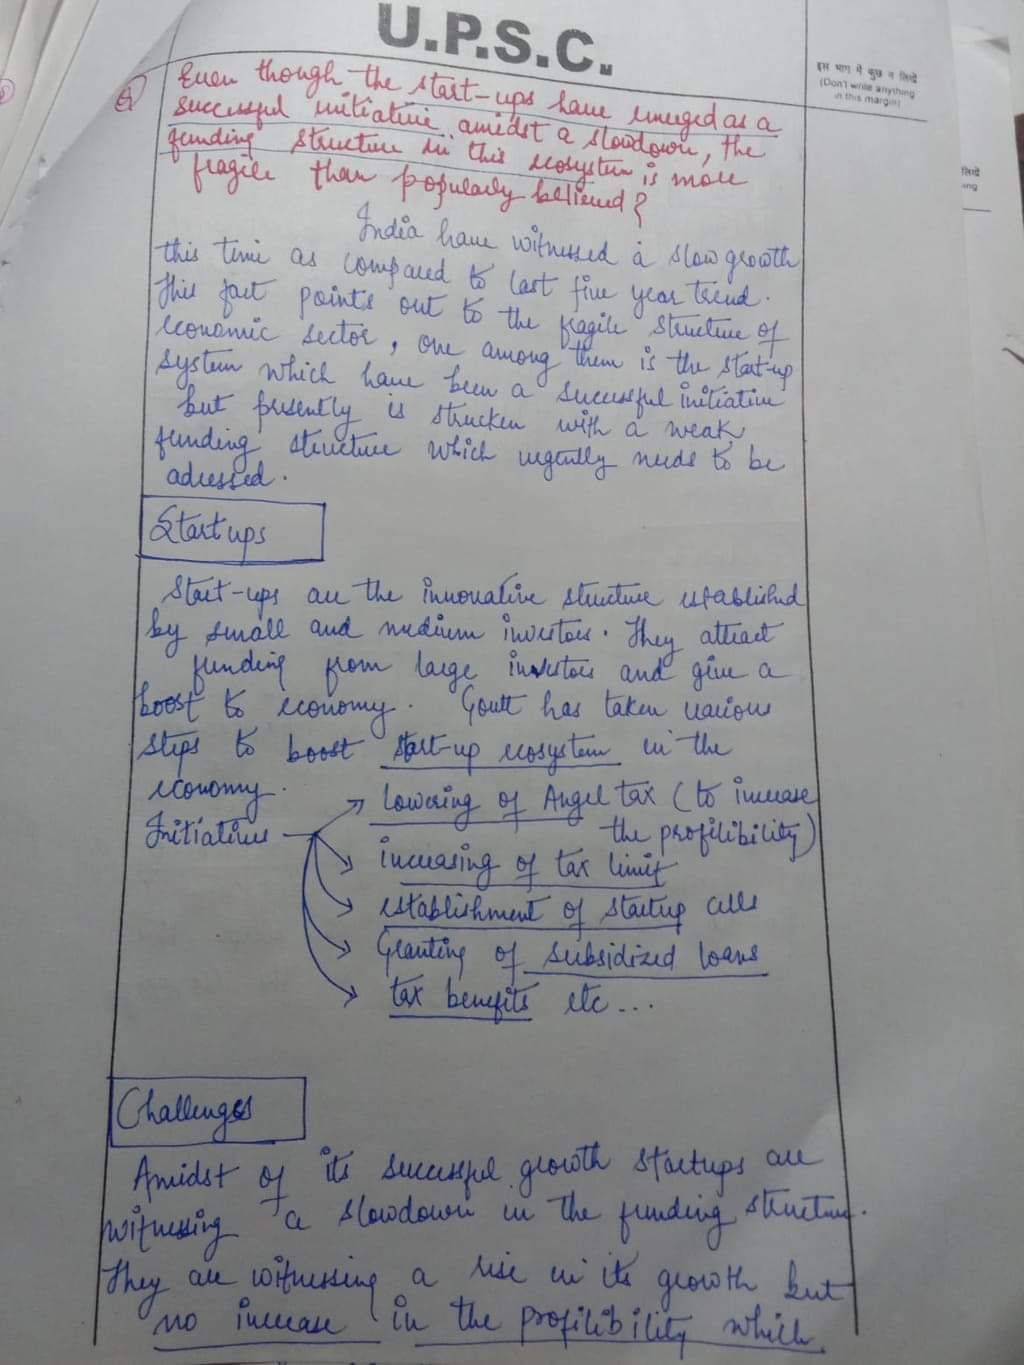 U.P.S.C.
इस भाग में कुछ न लिखें
(Don't write anything
in this margin)
Q) Even though the start-ups have emerged as a
successful initiative amidst a slowdown, the
funding structure in this ecosystem is more
fragile than popularly believed?
India have witnessed a slow growth
this time as compared to last five year trend.
This fact points out to the fragile structure of
economic sector, one among them is the start-up
system which have been a successful initiative
but presently is strucken with a weak
funding structure which urgently needs to be
adressed.
Startups
Start-ups are the innovative structure established
by small and medium investors. They attract
funding from large investors and give a
boost to economy. Govtt has taken various
steps to boost start-up ecosystem in the
economy.
Initiatives
lowering of Angel tax (to increase
the profilibility)
increasing of tax limit
establishment of startup cells
Granting of subsidized loans
tax benefits etc ...
Challenges
Amidst of its successful growth startups are
witnessing a slowdown in the funding structure.
They are witnessing a rise in its growth but
no increase in the profilibility which